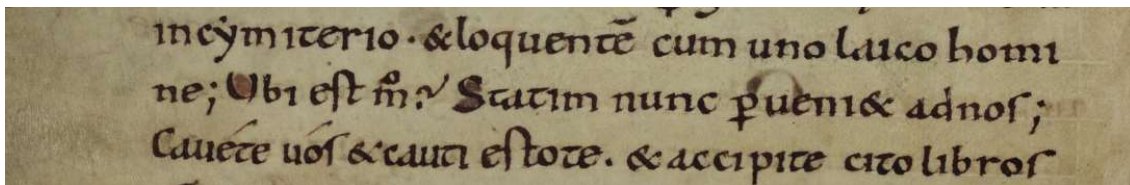 incẏmiterio · &loquentē cum uno laico homi
ne; Ubi eſt m̊? Statim nunc ꝑueni& adnoſ;
Cauéte uóſ &cauti eſtote. & accipite cito libroſ